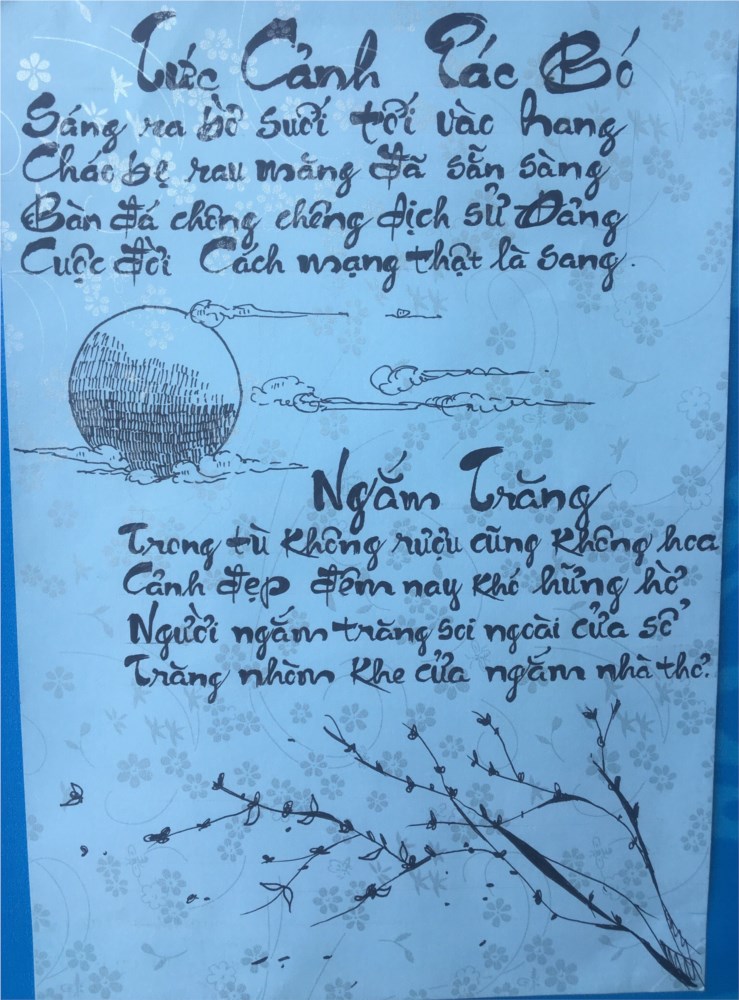 Tức Cảnh Pác Bó
Sáng ra bờ suối tối vào hang
Cháo bẹ rau măng đã sẵn sàng
Bàn đá chông chênh dịch sử Đảng
Cuộc đời Cách mạng thật là sang.
Ngắm Trăng
Trong tù không rượu cũng không hoa
Cảnh đẹp đêm nay khó hững hờ
Người ngắm trăng soi ngoài cửa sổ
Trăng nhòm khe cửa ngắm nhà thơ.